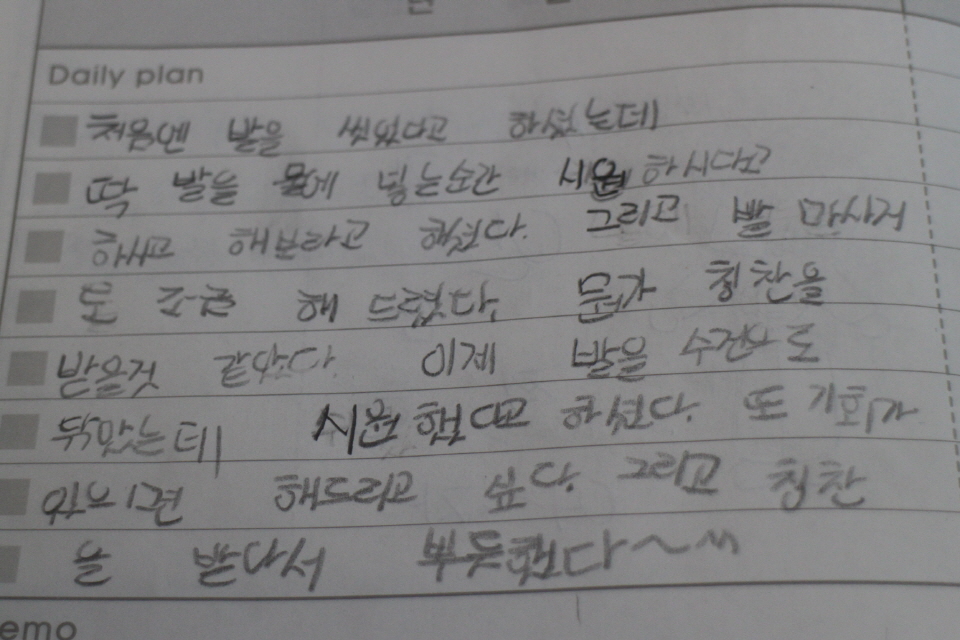 Daily plan
처음엔 발을 씻었다고 하셨는데
딱 발을 물에 넣는순간 시원하시다고
하시고 해보라고 하셨다. 그리고 발 마사지
도 조금 해 드렸다. 뭔가 칭찬을
받을것 같았다. 이제 발을 수건으로
닦았는데 시원했다고 하셨다. 또 기회가
있으면 해드리고 싶다. 그리고 칭찬
을 받아서 뿌듯했다~^^
emo